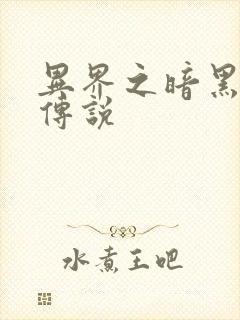 異界之暗黑
傳說
水煮王吧